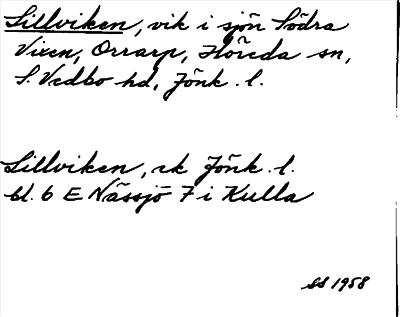 Lillviken, vik i sjön Södra
Vixen, Orrarp, Höreda sn,
S. Vedbo hd, Jönk. l.
Lillviken, ek Jönk. l.
bl. 6 E Nässjö 7 i Kulla
SS 1958